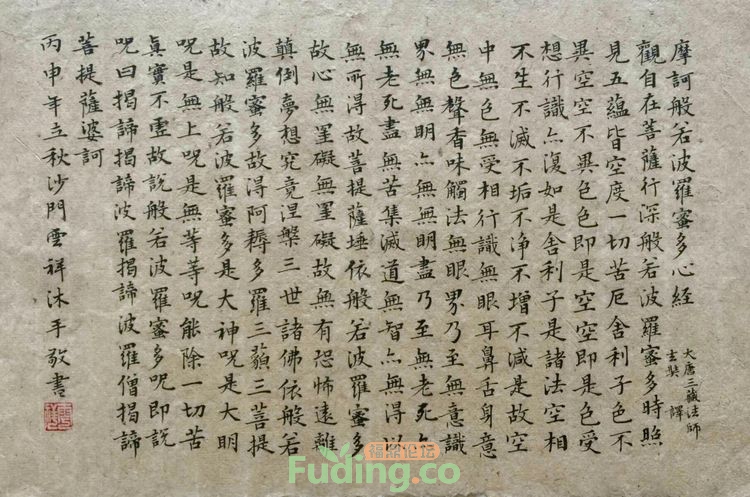 摩訶般若波羅蜜多心經
大唐三藏法師
玄奘 譯
觀自在菩薩行深般若波羅蜜多時照
見五蘊皆空度一切苦厄舍利子色不
異空空不異色色即是空空即是色受
想行識亦復如是舍利子是諸法空相
不生不滅不垢不净不增不減是故空
中無色無受相行識無眼耳鼻舌身意
無色聲香味觸法無眼界乃至無意識
界無無明亦無無明盡乃至無老死亦
無老死盡無苦集滅道無智亦無得以
無所得故菩提薩埵依般若波羅蜜多
故心無罣礙無罣礙故無有恐怖遠離
顛倒夢想究竟涅槃三世諸佛依般若
波羅蜜多故得阿耨多羅三藐三菩提
故知般若波羅蜜多是大神呪是大明
呪是無上呪是無等等呪能除一切苦
真實不虛故說般若波羅蜜多呪即說
呪曰揭諦揭諦波羅揭諦波羅僧揭諦
菩提薩婆訶
丙申年立秋沙門雲祥沐手敬書
福鼎论坛
Fuding.co